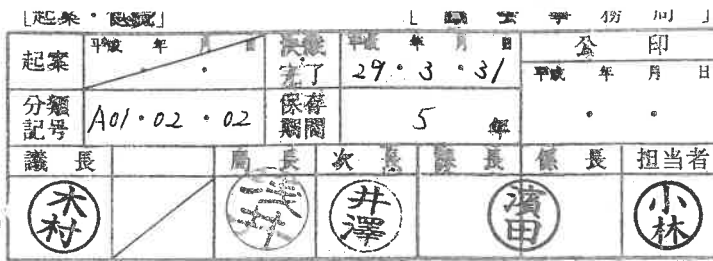 [起案・供覧] [議会事務局]
起案 平成 年 月 日 決裁完了 平成 年 月 日 29・3・31 公印 平成 年 月 日
分類記号 A01・02・02 保存期間 5年
議長 局長 次長 課長 係長 担当者
木村 井澤 濱田 小林